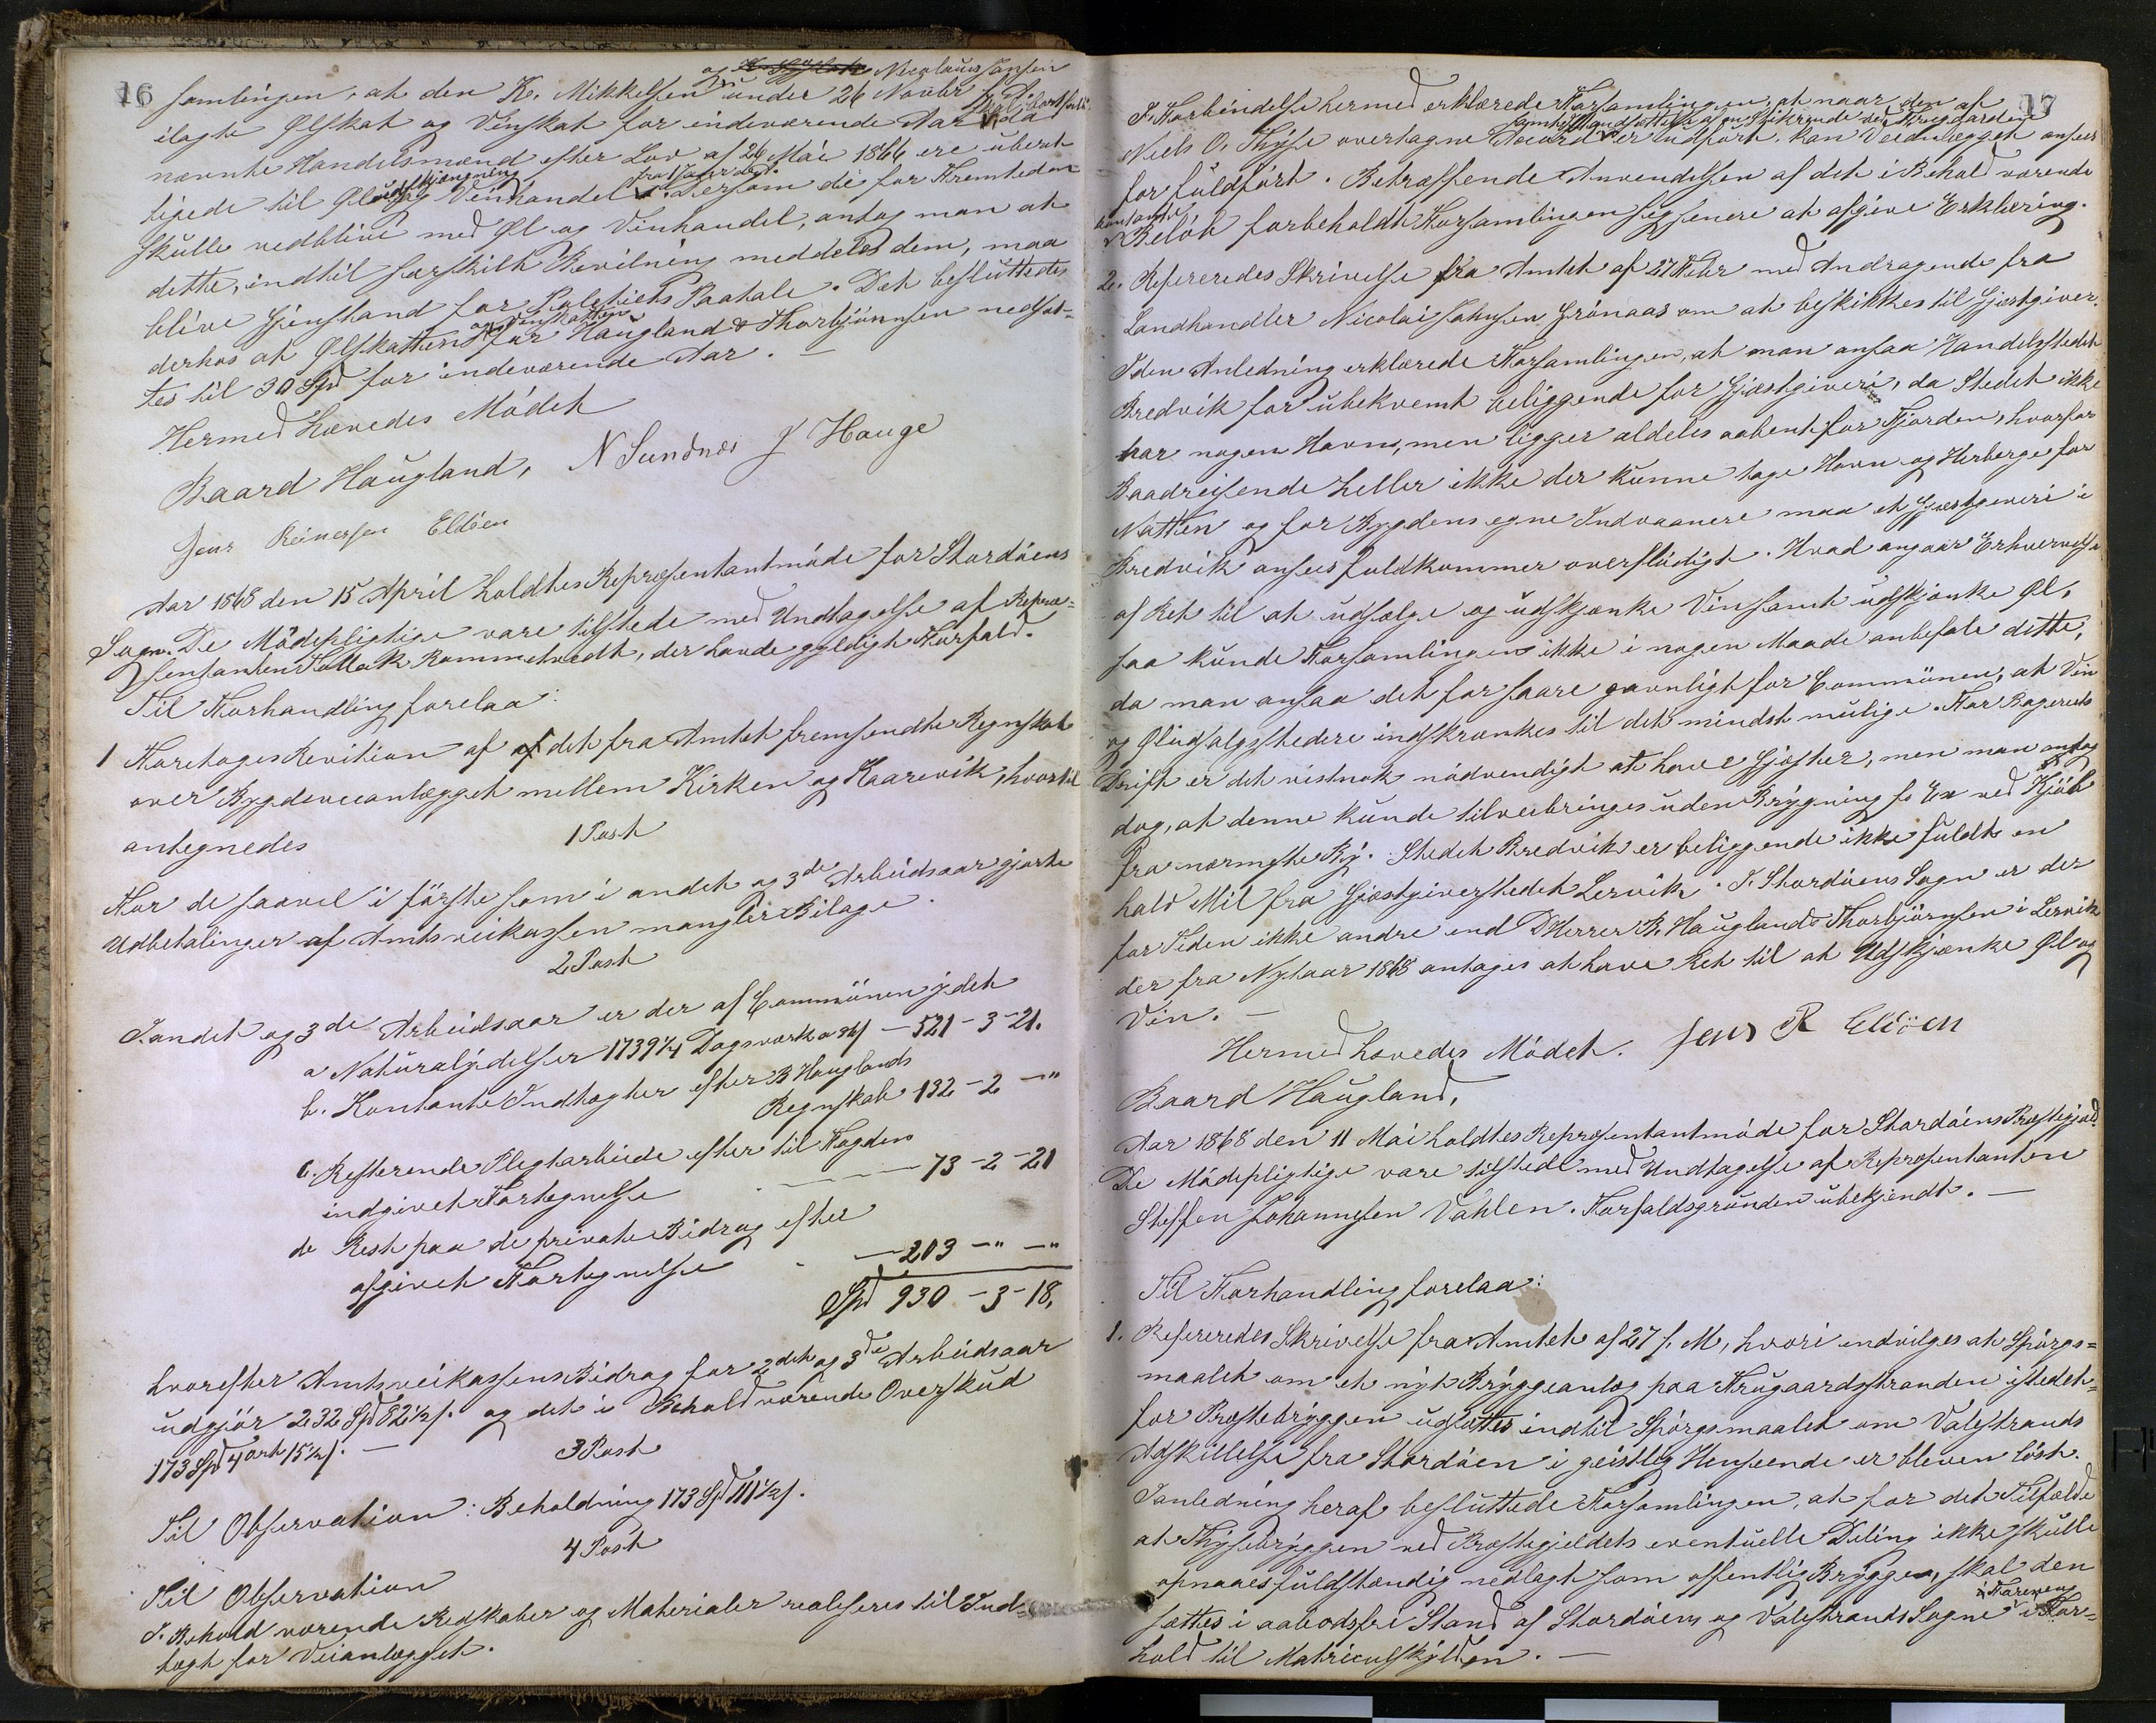 16
samlingen, at den K. Mikkelsen og Nicolaus Jansen under 26 Novbr f. A.
ilagte Ølskat og Vinskat for indeværende Aar skal bortfalde, da
nævnte Handelsmænd efter Lov af 26 Mai 1866 ere uberet-
tigede til Øludskjænkning og Vinhandel fra 1ste Januar dst. Dersom de for Fremtiden
skulle vedblive med Øl og Vinhandel, antog man at
dette, indtil særskilt Bevilning meddeles dem, maa
blive Gjenstand for Politiets Paatale. Det besluttedes
derhos at Ølskatten og Vinskatten for Haugland & Thorbjørnsen nedsat-
tes til 30 Spd for indeværende Aar. —
Hermed hævedes Mødet
Baard Haugland, N Sundnes J Hauge
Jens Reinersen Eldøen
Aar 1868 den 15 April holdtes Repræsentantmøde for Stordøens
Sogn. De Mødepligtige vare tilstede med Undtagelse af Repræ-
sentanten Tollak Rommetvedt, der havde gyldigt Forfald.
Til Forhandling forelaa:
1 Foretoges Revition af af det fra Amtet fremsendte Regnskab
over Bygdeveianlægget mellem Kirken og Kaarevik, hvortil
antegnedes
1 Post
For de saavel i første som i andet og 3de Arbeidsaar gjorte
Udbetalinger af Amtsveikassen mangler Bilage.
2 Post
I andet og 3de Arbeidsaar er der af Communen ydet
a Naturalydelser 1739¾ Dagsværk a 36 s — 521 - 3 - 21.
b. Kontante Indtægter efter B Hauglands
Regnskab 132 - 2 - "
c. Resterende Pligtarbeide efter til Fogden
indgivet Fortegnelse — — — 73 - 2 - 21
d. Rest paa de private Bidrag efter
afgivet Fortegnelse — 203 - " - "
Spd 930 - 3 - 18,
hvorefter Amtsveikassens Bidrag for 2det og 3de Arbeidsaar
udgjør 232 Spd 82½ s. og det i Behold værende Overskud
173 Spd 4 ort 15½ s. —
3 Post
Til Observation: Beholdning 173 Spd 111½ s.
4 Post
Til Observation
I Behold værende Redskaber og Materialer realiseres til Ind-
tægt for Veianlægget.
17
I Forbindelse hermed erklærede Forsamlingen, at naar den af
Niels O. Thyse overtagne Accord samt Istandsættelse af en Stikrende ved Frugaarden er udført, kan Veianlægget ansees
for fuldført. Betræffende Anvendelsen af det i Behold værende
kontante Beløb forbeholdt Forsamlingen sig senere at afgive Erklæring.
2. Refereredes Skrivelse fra Amtet af 27 Febr med Andragende fra
Landhandler Nicolai Johnsen Grønaas om at beskikkes til Gjæstgiver.
I den Anledning erklærede Forsamlingen, at man ansaa Handelsstedet
Bredvik for ubekvemt beliggende for Gjæstgiveri, da Stedet ikke
har nogen Havn, men ligger aldeles aabent for Fjorden, hvorfor
Baadreisende heller ikke der kunne tage Havn og Herberge for
Natten og for Bygdens egne Indvaanere maa et Gjæstgiveri i
Bredvik ansees fuldkommen overflødigt. Hvad angaar Erhvervelse
af Ret til at udsælge og udskjænke Vin samt udskjænke Øl,
saa kunde Forsamlingen ikke i nogen Maade anbefale dette,
da man ansaa det for saare gavnligt for Communen, at Vin
og Øludsalgsstedere indskrænkes til det mindst mulige. For Bageriets
Drift er det vistnok nødvendigt at have Gjæster, men man antog
dog, at denne kunde tilveiebringes uden Brygning f. Ex ved Kjøb
fra nærmeste By. Stedet Bredvik er beliggende ikke fuldt en
halv Mil fra Gjæstgiverstedet Lervik. I Stordøens Sogn er der
for Tiden ikke andre end D'Herrer B. Haugland & Thorbjørnsen i Lervik
der fra Nytaar 1868 antages at have Ret til at Udskjænke Øl og
Vin. —
Hermed hævedes Mødet. Jens R Eldøen
Baard Haugland,
Aar 1868 den 11 Mai holdtes Repræsentantmøde for Stordøens Præstegjæld.
De Mødepligtige vare tilstede med Undtagelse af Repræsentanten
Steffen Johannesen Vahlen. Forfaldsgrunden ubekjendt. —
Til Forhandling forelaa:
1. Refereredes Skrivelse fra Amtet af 27 f. M, hvori indvilges at Spørgs-
maalet om et nyt Bryggeanlæg paa Frugaardsstranden istedet-
for Præstebryggen udsættes indtil Spørgsmaalet om Valestrands
Adskillelse fra Stordøen i geistlig Henseende er bleven løst.
I anledning heraf besluttede Forsamlingen, at for det Tilfælde
at Thysebryggen ved Præstegjeldets eventuelle Deling ikke skulle
opnaaes fuldstændig nedlagt som offentlig Brygge, skal den
sættes i aabodsfri Stand af Stordøens og Valestrands Sogne i Forening i For-
hold til Matriculskylden. —